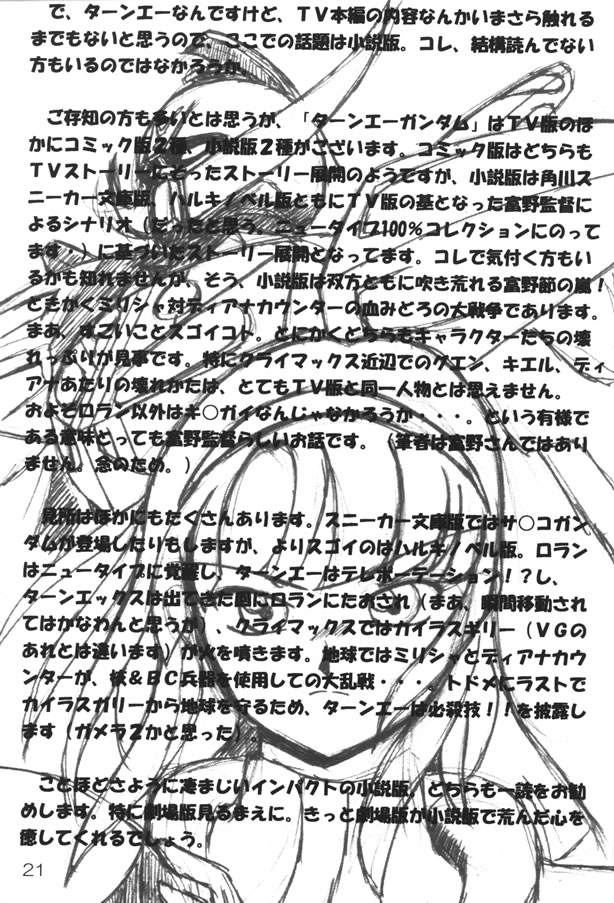 で、ターンエーなんですけど、ＴＶ本編の内容なんかいまさら触れる
までもないと思うので、ここでの話題は小説版。コレ、結構読んでない
方もいるのではなかろうか。
ご存知の方も多いとは思うが、「ターンエーガンダム」はＴＶ版のほ
かにコミック版２種、小説版２種がございます。コミック版はどちらも
ＴＶストーリーにそったストーリー展開のようですが、小説版は角川ス
ニーカー文庫版、ハルキノベル版ともにＴＶ版の基となった富野監督に
よるシナリオ（だったと思う。ニュータイプ100％コレクションにのって
ます）に基づいたストーリー展開となってます。コレで気付く方もい
るかも知れませんが、そう、小説版は双方ともに吹き荒れる富野節の嵐！
とにかくミリシャ対ディアナカウンターの血みどろの大戦争であります。
まあ、すごいことスゴイコト。とにかくどちらもキャラクターたちの壊
れっぷりが見事です。特にクライマックス近辺でのグエン、キエル、ディ
アナあたりの壊れかたは、とてもＴＶ版と同一人物とは思えません。
およそロラン以外はキ○ガイなんじゃなかろうか・・・。という有様で
ある意味とっても富野監督らしいお話です。（筆者は富野さんではあり
ません。念のため。）
見所はほかにもたくさんあります。スニーカー文庫版ではサ○コガン
ダムが登場したりもしますが、よりスゴイのはハルキノベル版。ロラン
はニュータイプに覚醒し、ターンエーはテレポーテーション！？し、
ターンエックスは出てきた回にロランにたおされ（まあ、瞬間移動され
てはかなわんと思うが）、クライマックスではカイラスギリー（ＶＧの
あれとは違います）が火を噴きます。地球ではミリシャとディアナカウ
ンターが、核＆ＢＣ兵器を使用しての大乱戦・・・。トドメにラストで
カイラスガリーから地球を守るため、ターンエーは必殺技！！を披露し
ます（ガメラ２かと思った）。
ことほどさように凄まじいインパクトの小説版、どちらも一読をお勧
めします。特に劇場版見るまえに。きっと劇場版が小説版で荒んだ心を
癒してくれるでしょう。
21